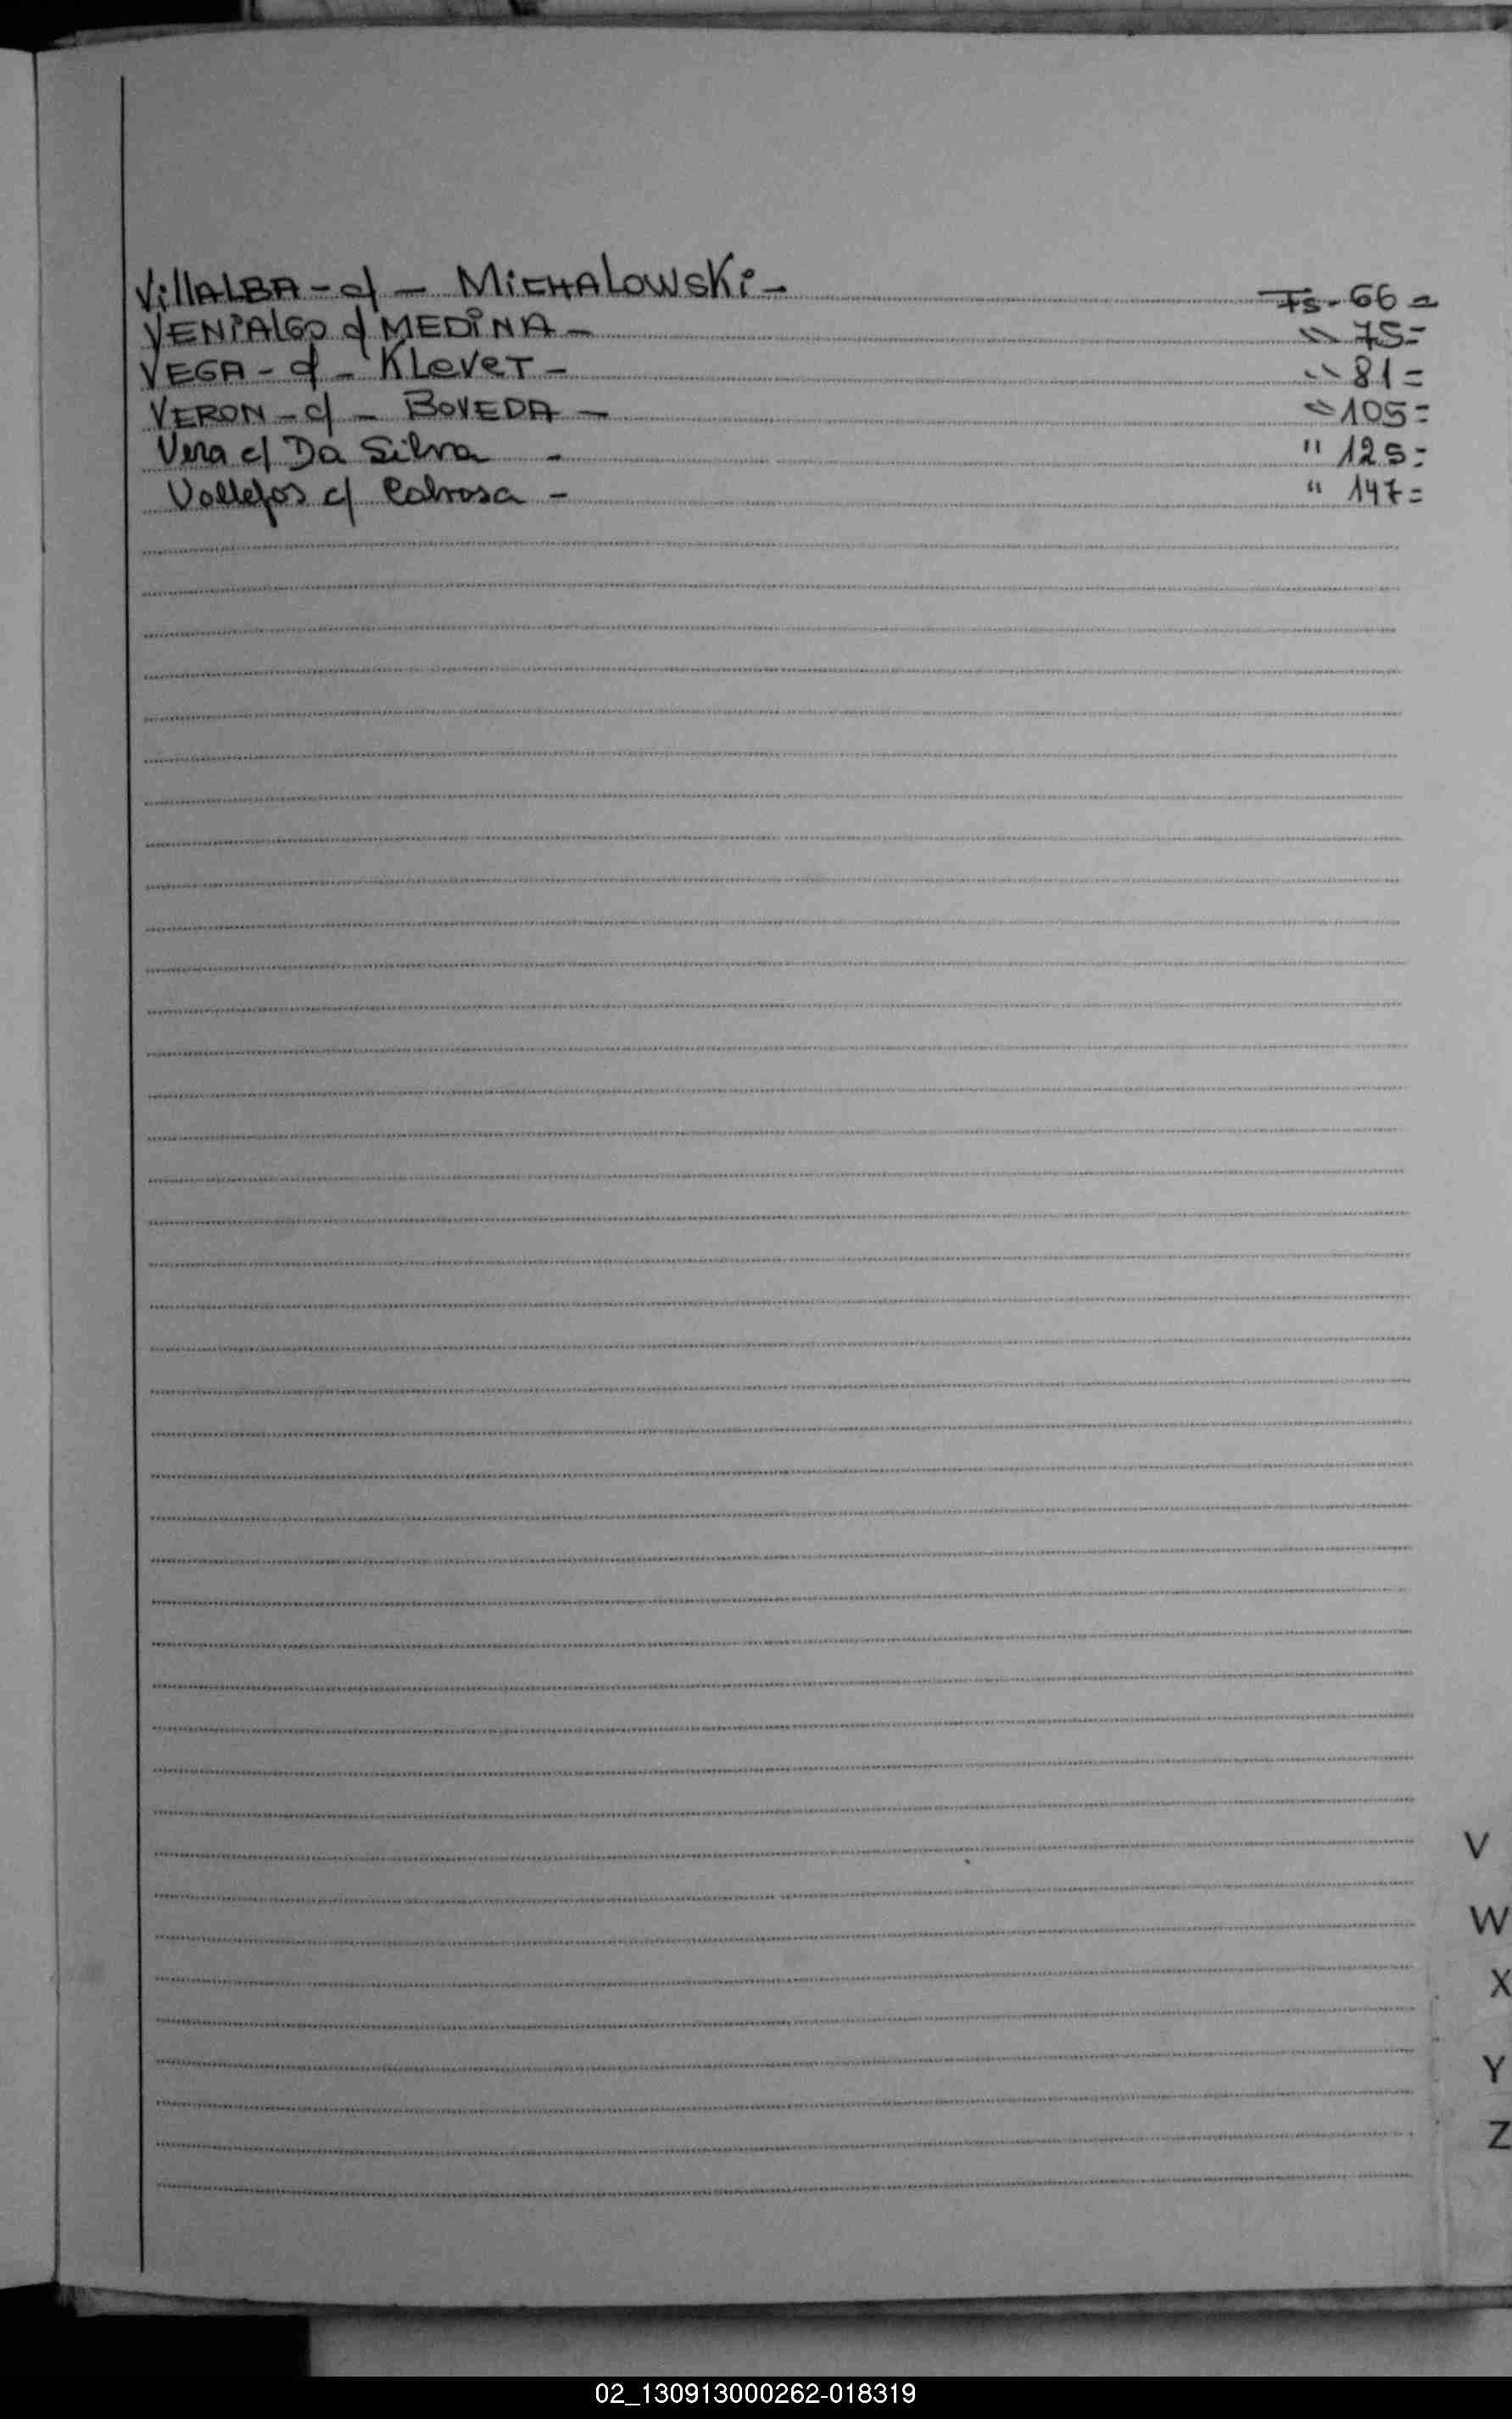 VillALBA - c/ - MiCHALowski - Fs - 66 =
VENIALGO c/ MEDINA - " 75 =
VEGA - c/ - KLeveR - " 81 =
VERON - c/ - BOVEDA - " 105 =
Vera c/ Da Silva - " 125 =
Vallejos c/ - " 147 =
V
W
X
Y
Z
02_130913000262-018319